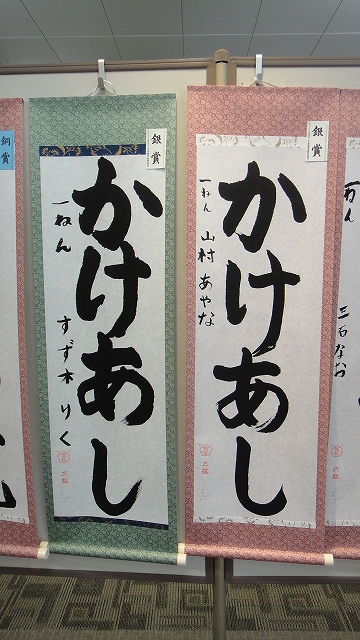 銀賞
かけあし
一ねん 山村 あやな
三級
銀賞
かけあし
一ねん すず木 りく
三級
銅賞
三石なお
六級